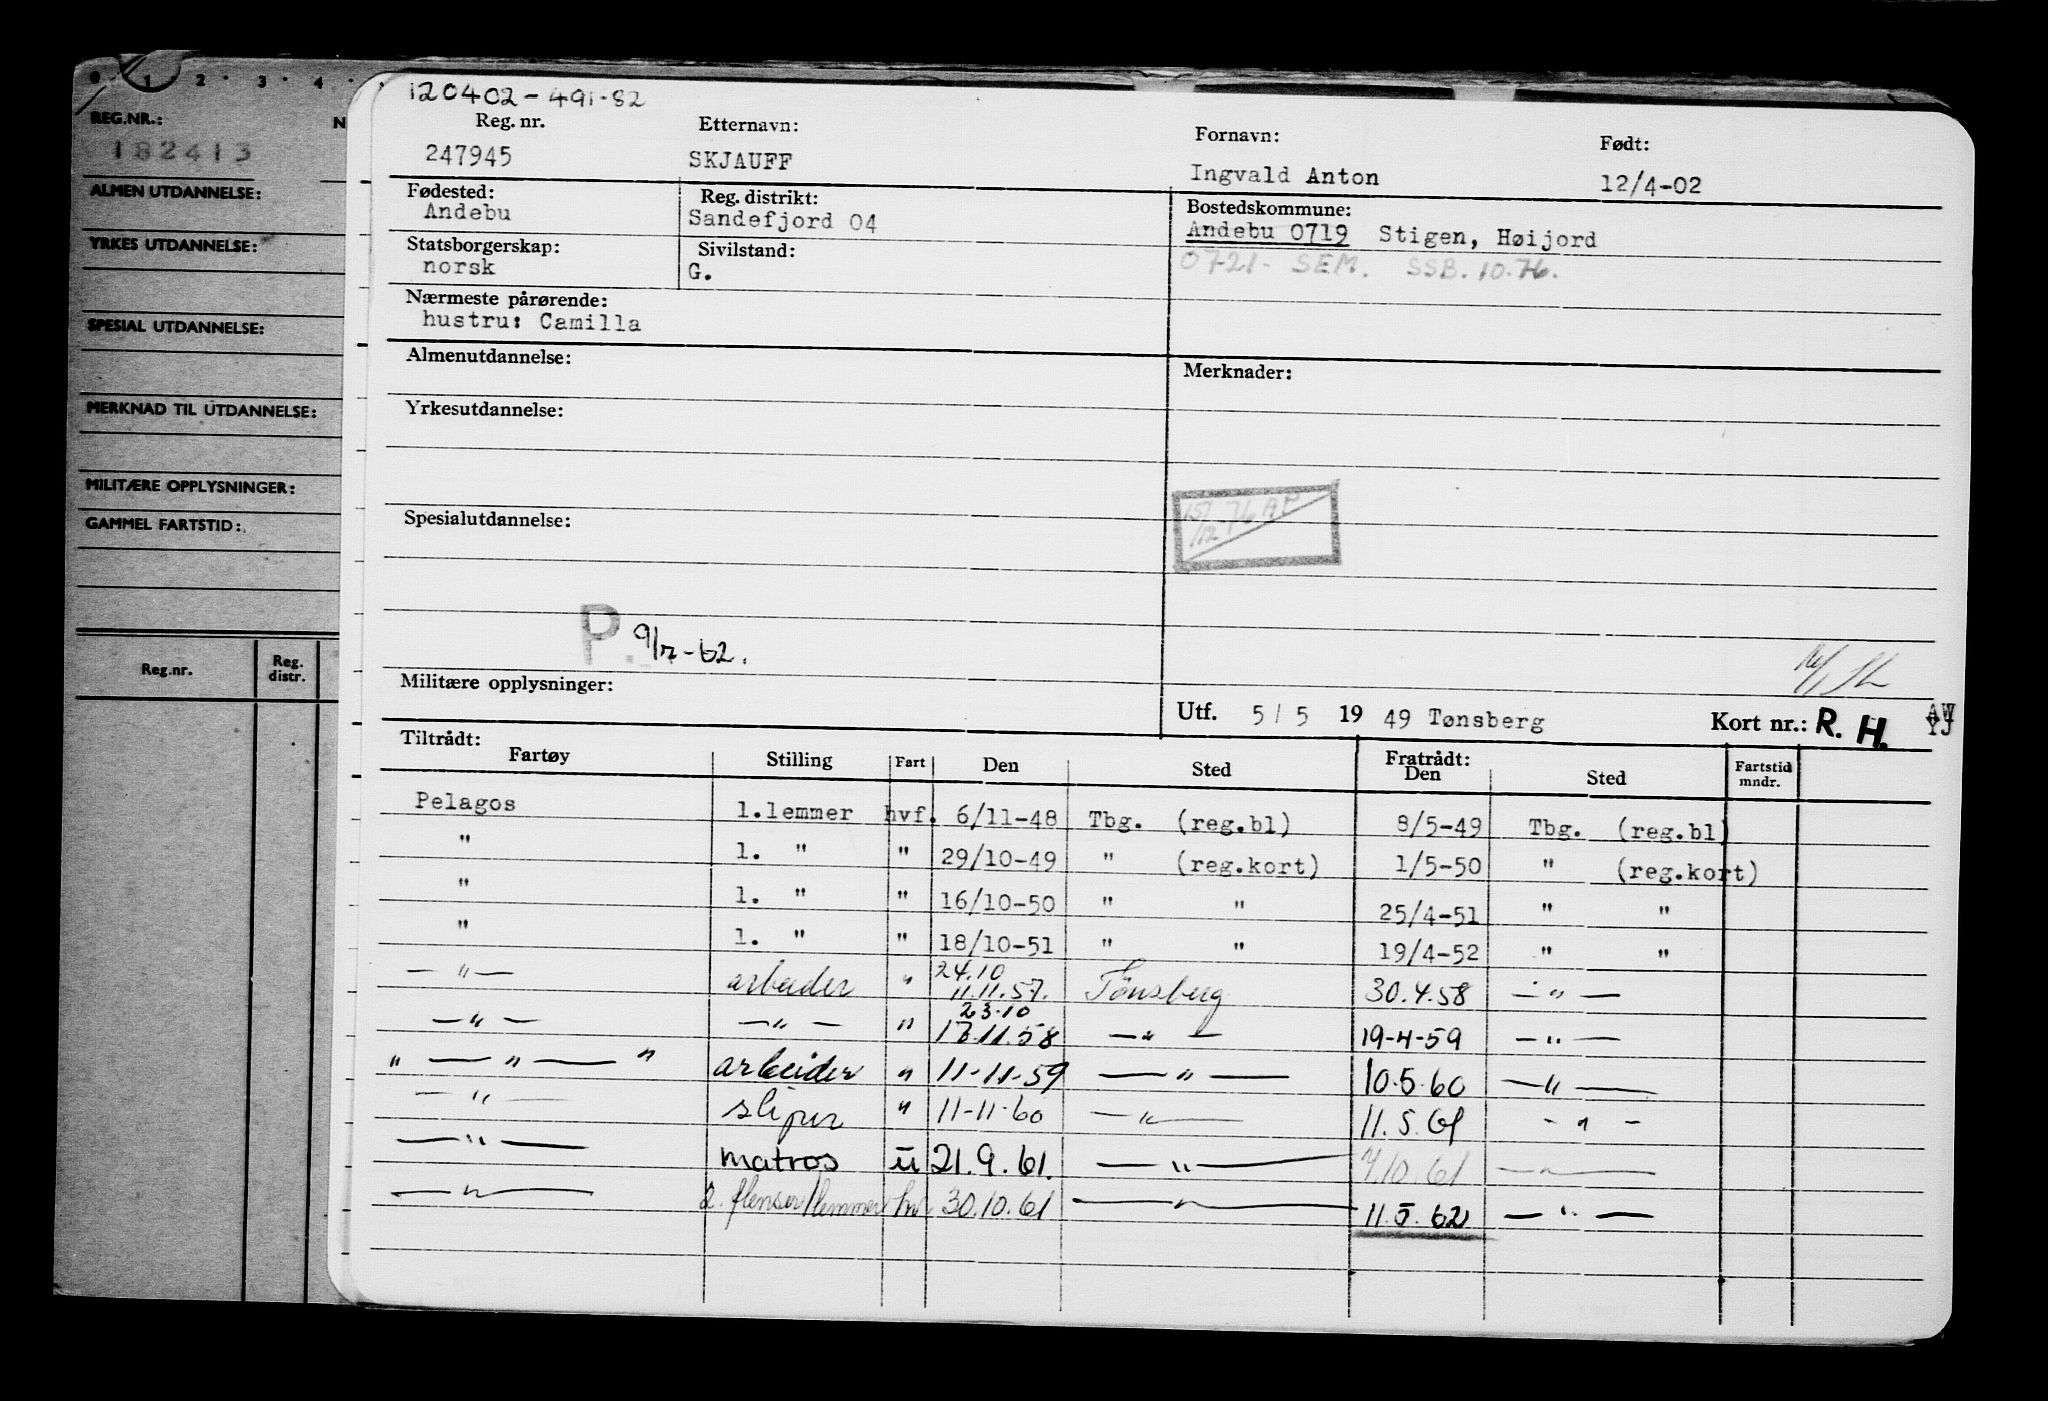 0 1 2 3 4
REG.NR.: N
182413
ALMEN UTDANNELSE:
YRKES UTDANNELSE:
SPESIAL UTDANNELSE:
MERKNAD TIL UTDANNELSE:
MILITÆRE OPPLYSNINGER:
GAMMEL FARTSTID:
Reg.nr. Reg. distr.
120402-491-82
Reg. nr. Etternavn: Fornavn: Født:
247945 SKJAUFF Ingvald Anton 12/4-02
Fødested: Reg. distrikt: Bostedskommune:
Andebu Sandefjord 04 Andebu 0719 Stigen, Høijord
Statsborgerskap: Sivilstand: 0721- SEM. SSB. 10.76.
norsk G.
Nærmeste pårørende:
hustru: Camilla
Almenutdannelse: Merknader:
Yrkesutdannelse:
15/12 76 AP
Spesialutdannelse:
P. 9/7-62.
Militære opplysninger:
Utf. 5/5 19 49 Tønsberg Kort nr.: R. H. AW YJ
Tiltrådt: Fratrådt:
Fartøy Stilling Fart Den Sted Den Sted Fartstid mndr.
Pelagos 1.lemmer hvf. 6/11-48 Tbg. (reg.bl) 8/5-49 Tbg. (reg.bl)
" 1. " " 29/10-49 " (reg.kort) 1/5-50 " (reg.kort)
" 1. " " 16/10-50 " " 25/4-51 " "
" 1. " " 18/10-51 " " 19/4-52 " "
24.10
—"— arbeider " 11.11.57. Tønsberg 30.4.58 —"—
23.10
—"— —"— " 13.11.58 —"— 19-4-59 —"—
" —"— " arbeider " 11-11-59 —"— 10.5.60 —"—
—"— sliper " 11-11-60 —"— 11.5.61 -"-
—"— matros u 21.9.61. —"— 7.10.61 —"—
—"— 2. flenser/lemmer hv 30.10.61 —"— 11.5.62 —"—